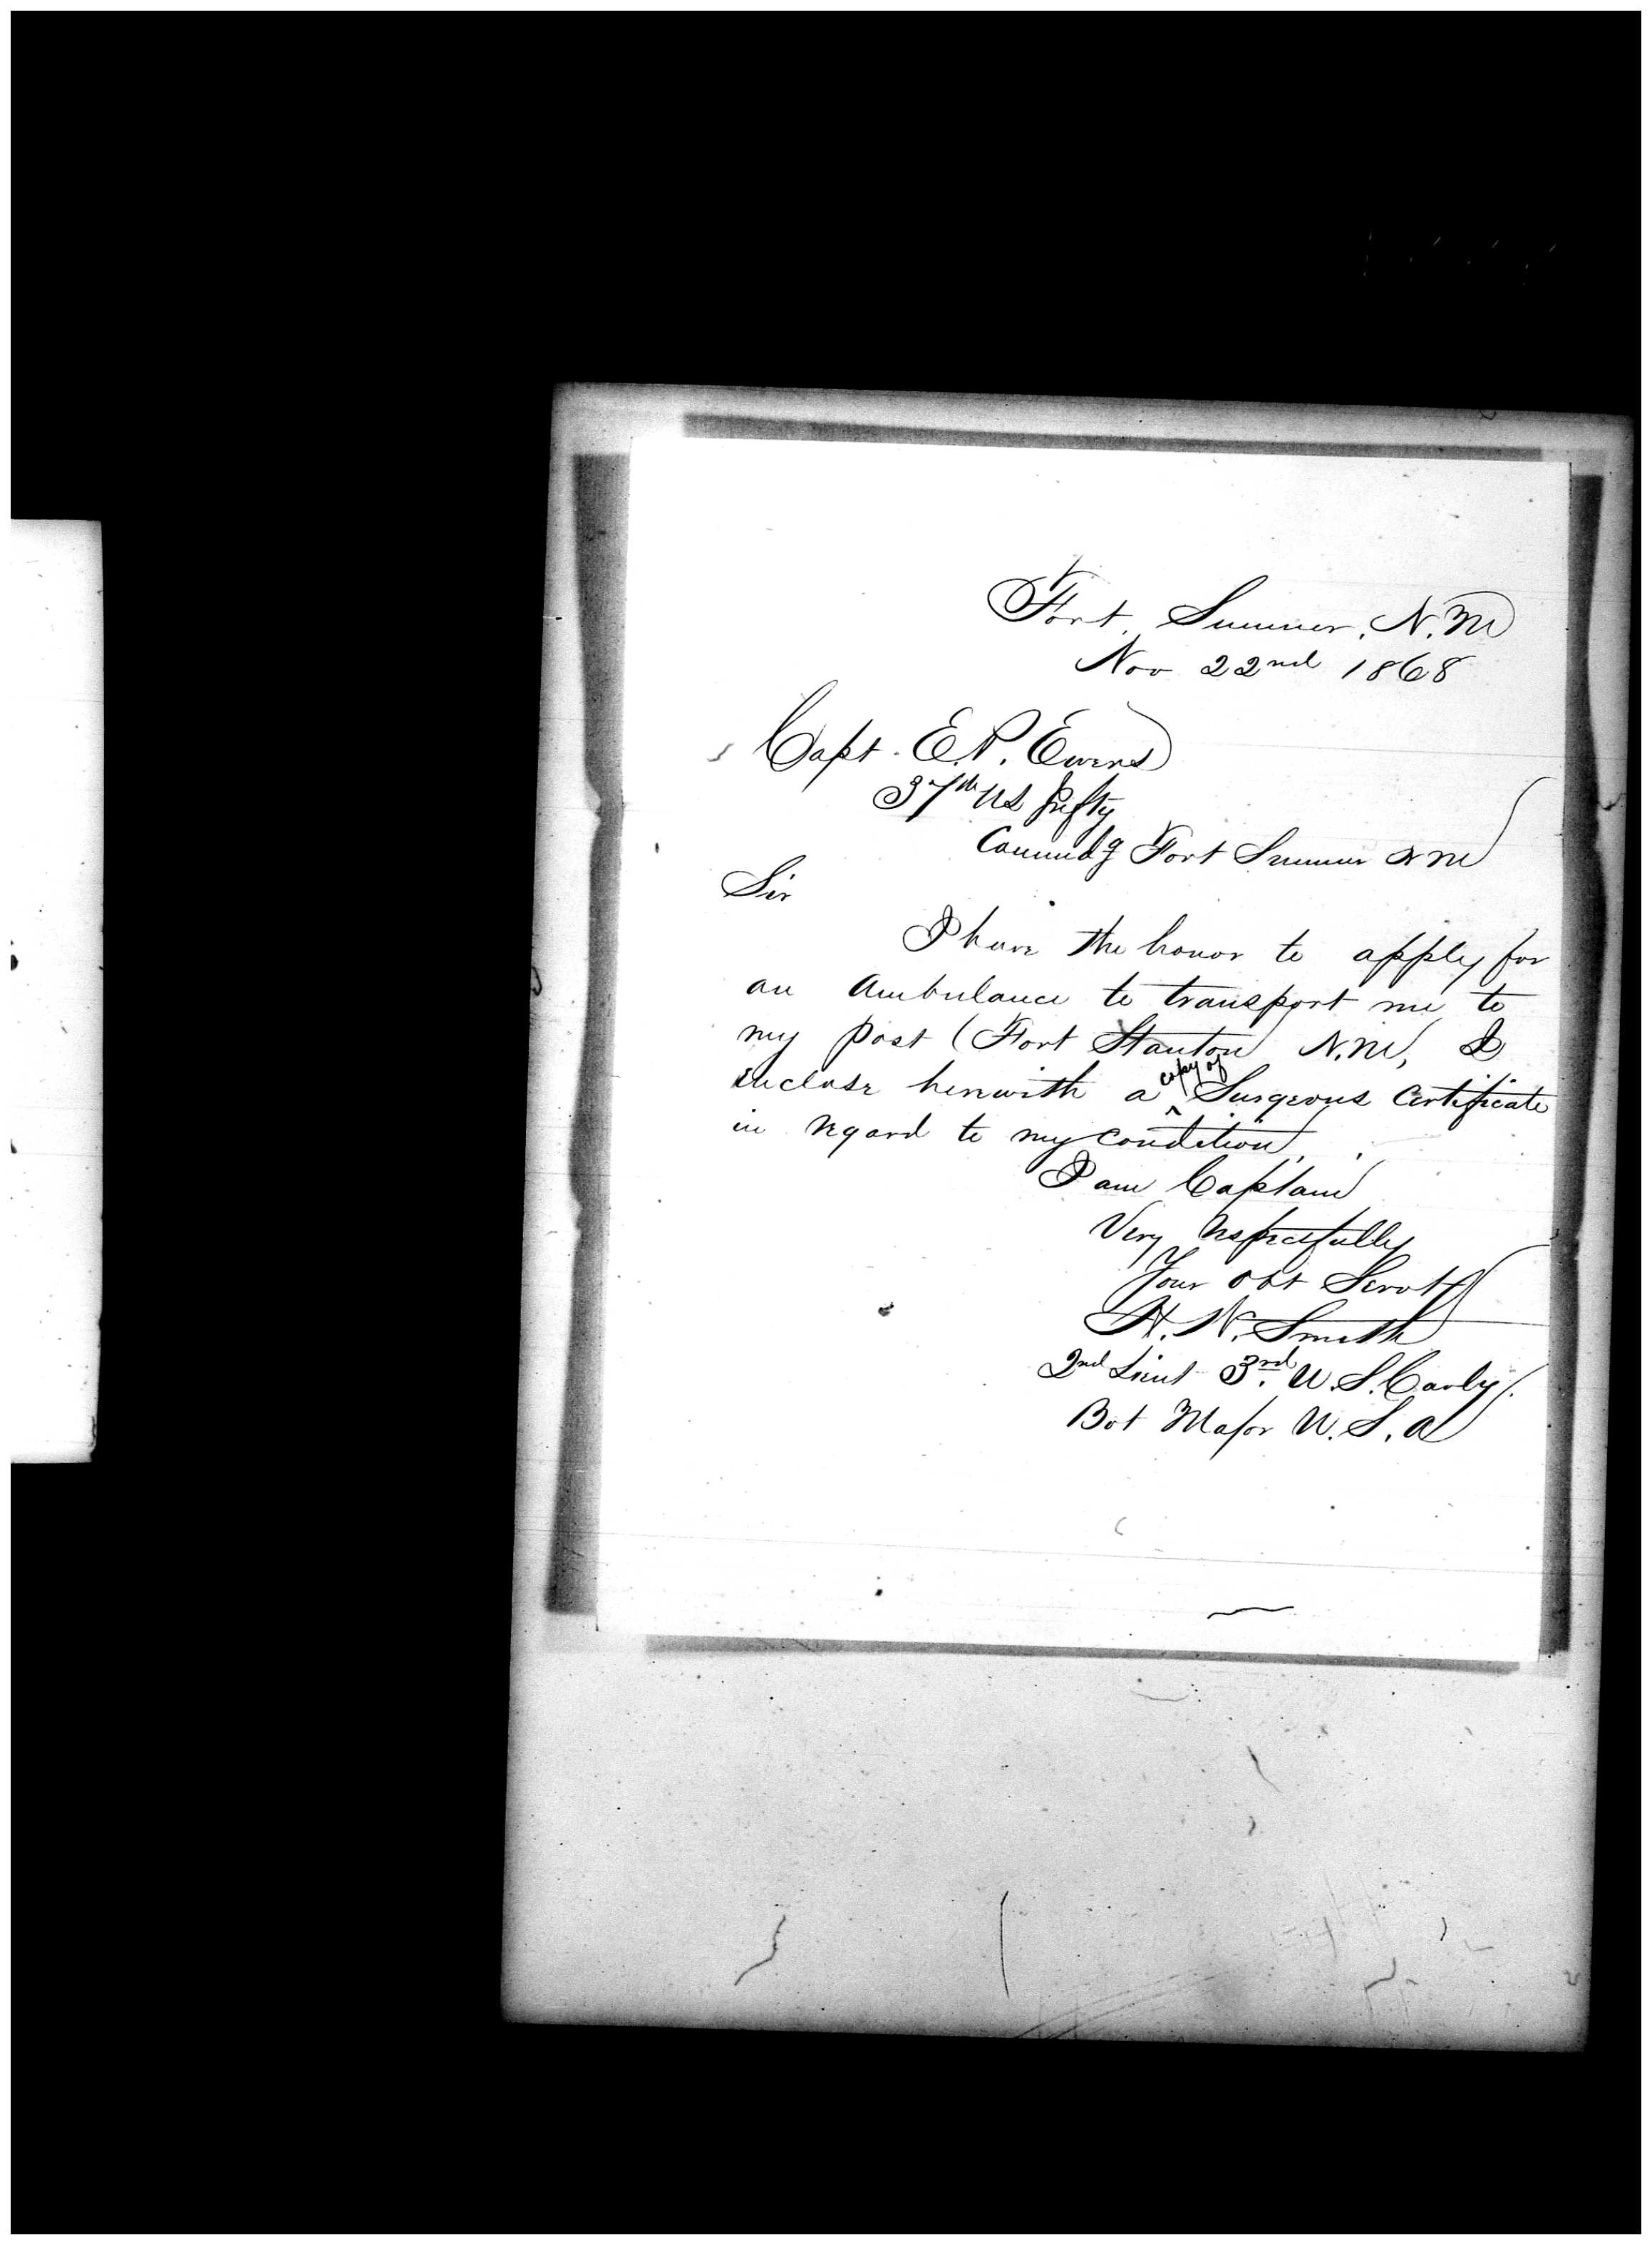 Fort Sumner, N.M
Nov 22nd 1868
Capt. E.P. Ewers
37th US Infty
Commdg Fort Sumner N M
Sir
I have the honor to apply for
an Ambulance to transport me to
my post (Fort Stanton N.M, I
inclose herewith a copy of Surgeons Certificate
in regard to my condition.
I am Captain
Very respectfully
Your obt Servt
H. W. Smith
2nd Lieut 3rd. U.S. Cavly.
Bvt Major U.S.A